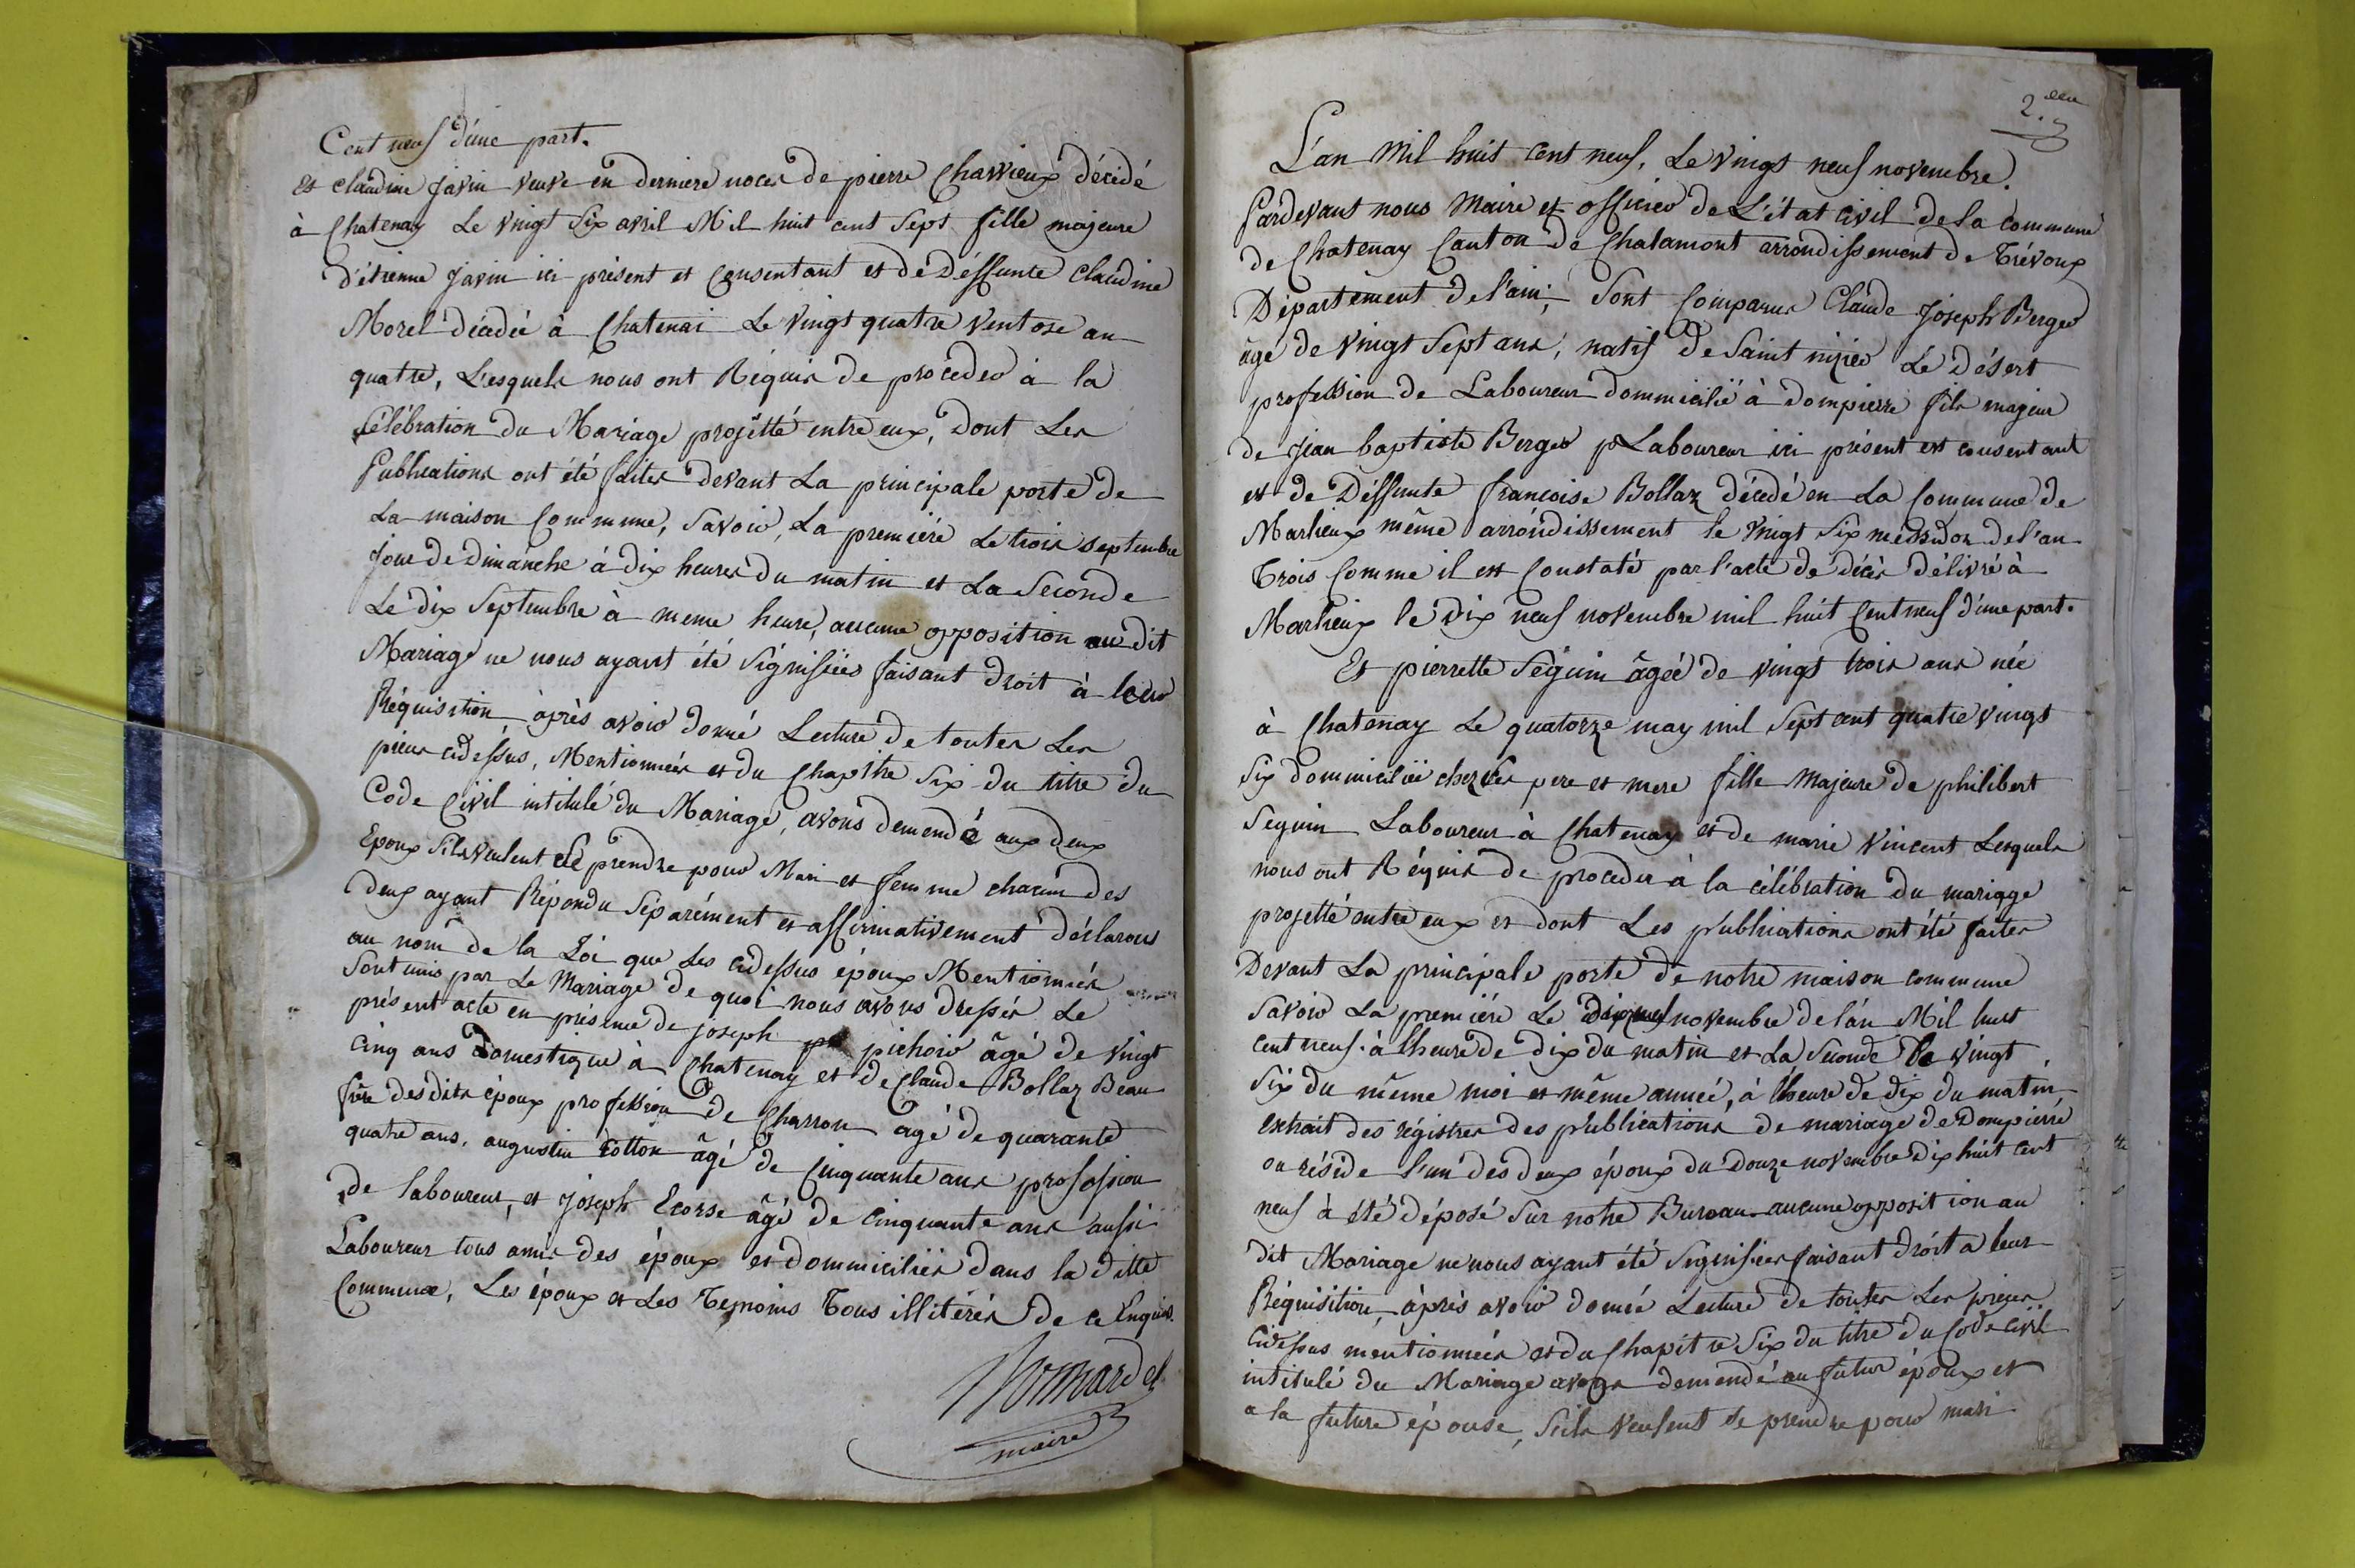 Cent neuf d'une part.
Et claudine javin veuve en derniere noces de pierre Charvieux décédé
à Chatenay Le vingt Six avril Mil huit cent Sept fille majeure
d'étienne Javin ici présent et Consentant et de Deffunte Claudine
Morel décédée à Chatenai Le Vingt quatre Ventose an
quatre, Lesquels nous ont Réquis de proceder à la
Célébration du Mariage projetté entre eux, dont Les
Publications ont été faites devant La principale porte de
La maison Commune, Savoir, La premiére Le trois septembre
Jour de Dimanche à dix heures du matin et La Seconde
Le dix Septembre à meme heure, aucune opposition au dit
Mariage ne nous ayant été Signifiées faisant droit à leur
Réquisition après avoir donné Lecture de toutes Les
pieces cidessus, Mentionnées et du Chapitre Six du titre du
Code Civil intitulé du Mariage, avons demendé aux deux
Epoux S'ils veulent Se prendre pour Mari et femme chacun des
deux ayant Répondu Séparément et affirmativement déclarons
au nom de la Loi que Les cidessus époux Mentionnés
Sont unis par Le Mariage de quoi nous avons dressés Le
présent acte en présence de joseph pichoir âgé de vingt
Cinq ans Domestique à Chatenay et de Claude Bollaz Beau
frère desdits époux profession de Charron agé de quarante
quatre ans, augustin Cotton âgé de Cinquante ans profession
de laboureur, et Joseph Ecorse âgé de Cinquante ans aussi
Laboureur tous amis des époux et dommiciliés dans la ditte
Commune, Les époux et Les Temoins Tous illitérés de ce Enquis.
maire
2.eme
L'an Mil huit cent neuf, Le Vingt neuf novembre.
Pardevant nous Maire et officier de L'état Civil de la Commune
de Chatenay Canton de Chalamont arrondissement de Trévoux
Département de l'ain; Sont Comparus Claude Joseph Berger
âgé de Vingt Sept ans, natif de Saint nizier Le Désert
profession de Laboureur dommicilié à dompierre fils majeur
de Jean baptiste Berger Laboureur ici présent et consentant
et de Déffunte francoise Bollaz décédé en La Commune de
Marlieux même arrondissement le Vingt Six messidor de l'an
Trois Comme il est Constaté par l'acte de décès délivré à
Marlieux le dix neuf novembre mil huit Cent neuf d'une part.
Et pierrette Séguin âgée de vingt trois ans née
à Chatenay Le quatorze may mil Sept cent quatre vingt
Six dommiciliée chez Ses pere et mere fille Majeure de philibert
Seguin Laboureur à Chatenay et de marie Vincent Lesquels
nous ont Réquis de proceder à la célébration du mariage
projetté entre eux et dont Les publications ont été faites
Devant La principale porte de notre maison commune
Savoir La premiére Le dix neuf novembre de l'an Mil huit
cent neuf à l'heure de dix du matin et La Seconde Le vingt
Six du même moi et même année, à l'heure de dix du matin
extrait des régistres des publications de mariage de Dompierre
ou réside l'un des deux époux du Douze novembre Dix huit cent
neuf à été déposé Sur notre Bureau aucune opposition au
dit Mariage ne nous ayant été Signifiées faisant droit a leur
Réquisition, àprès avoir donné Lecture de toutes Les pieces
cidessus mentionnées et du Chapitre Six du titre du Code Civil
intitulé du Mariage avons demendé au futur époux et
a la future épouse, S'ils veulent Se prendre pour mari